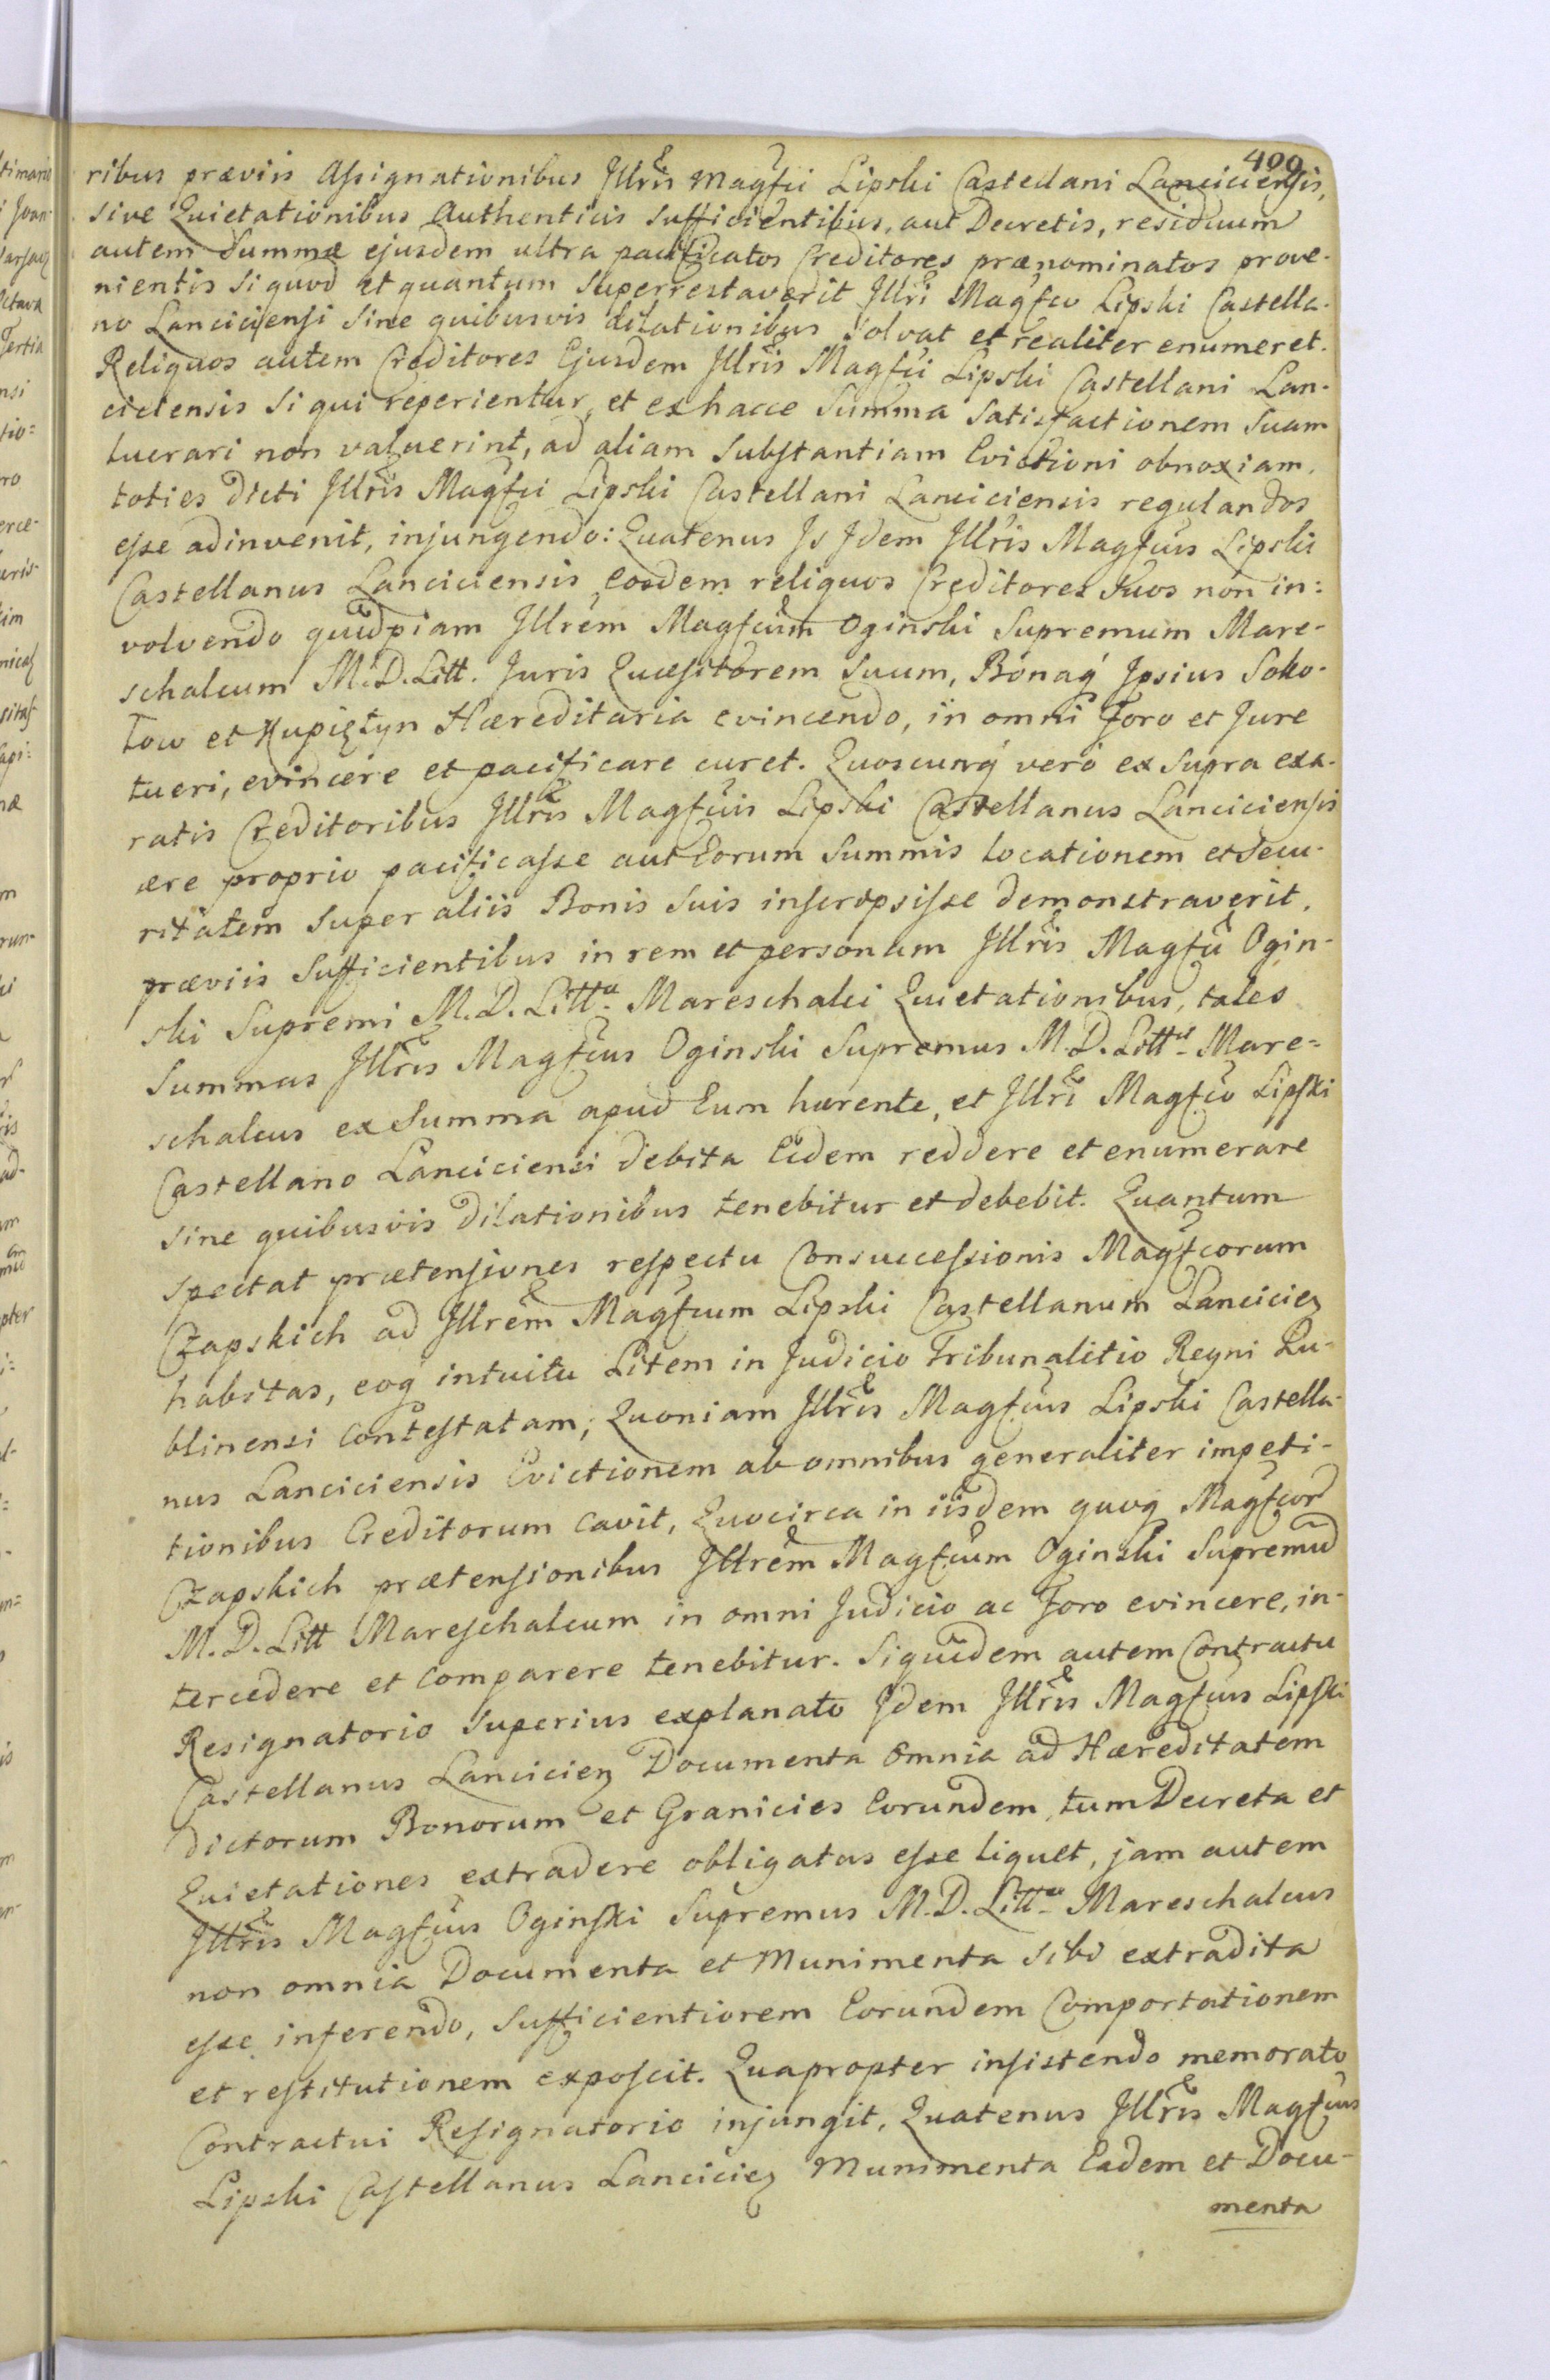 409
ribus præviis Assignationibus Jllris Magfci Lipski Castellani Lanciciensis,
sive Quietationibus Authenticis Sufficientibus, aut Decretis, residuum
autem Summæ ejusdem ultra pacificatos Creditores prænominatos prove-
nientis si quod et quantum Superrestaverit Jllri Magfco Lipski Castella-
no Lanciciensi Sine quibusvis dilationibus solvat et realiter enumeret.
Reliquos autem Creditores Ejusdem Jllris Magfci Lipski Castellani Lan-
ciciensis Si qui reperientur, et ex hacce Summa Satisfactionem Suam
lucrari non valuerint, ad aliam Substantiam Evictioni obnoxiam,
toties dicti Jllris Magfci Lipski Castellani Lanciciensis regulandos
esse adinvenit, injungendo: Quatenus Is Idem Jllris Magfcus Lipski
Castellanus Lanciciensis, Eosdem reliquos Creditores Suos non in:
volvendo quidpiam Jllrem Magfcum Oginski Supremum Mare-
schalcum M.D.Litt. Juris Quæsitorem Suum, Bonaq Ipsius Soko-
low et Kupiętyn Hæreditaria evincendo, in omni Foro et Jure
tueri, evincere et pacificare curet. Quoscunq vero ex Supra exa-
ratis Creditoribus Jllris Magfcus Lipski Castellanus Lanciciensis
ære proprio pacificasse aut Eorum Summis locationem et Secu-
ritatem Super aliis Bonis Suis inscripsisse demonstraverit,
præviis Sufficientibus in rem et personam Jllris Magfci Ogin-
ski Supremi M.D.Littæ Mareschalci Quietationibus, tales
Summas Jllris Magfcus Oginski Supremus M.D.Littæ Mare=
schalcus ex Summa apud Eum hærente, et Jllri Magfco Lipski
Castellano Lanciciensi debita Eidem reddere et enumerare
sine quibusvis dilationibus tenebitur et debebit. Quantum
spectat prætensiones respectu Consuccessionis Magfcorum
Czapskich ad Jllrem Magfcum Lipski Castellanum Lancicien
habitas, eoq intuitu Litem in Judicio Tribunalitio Regni Lu-
blinensi Contestatam; Quoniam Jllris Magfcus Lipski Castella-
nus Lanciciensis Evictionem ab omnibus generaliter impeti-
tionibus Creditorum cavit, Quocirca in iisdem quoq Magfcor
Czapskich prætensionibus Jllrem Magfcum Oginski Supremu
M.D.Litt Mareschalcum in omni Judicio ac Foro evincere, in-
tercedere et comparere tenebitur. Siquidem autem Contractu
Resignatorio Superius explanato Idem Jllris Magfcus Lipski
Castellanus Lancicien Documenta Omnia ad Hæreditatem
dictorum Bonorum et Granicies Eorundem, tum Decreta et
Quietationes extradere obligatus esse liquet, jam autem
Jllris Magfcus Oginski Supremus M.D.Littæ Mareschalcus
non omnia Documenta et Munimenta Sibi extradita
esse inferendo, Sufficientiorem Eorundem Comportationem
et restitutionem exposcit. Quapropter insistendo memorato
Contractui Resignatorio injungit, Quatenus Jllris Magfcus
Lipski Castellanus Lancicien Munimenta Eadem et Docu-
menta